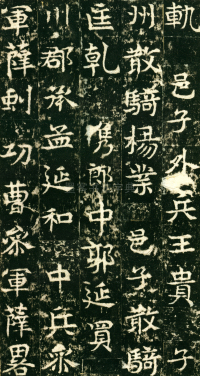 軌 邑子外兵王貴 子
州散騎楊業 邑子散騎
匡乹 儁郎中郭延買
川郡徐益延和 中兵參
軍薛剉功曹參軍薛署